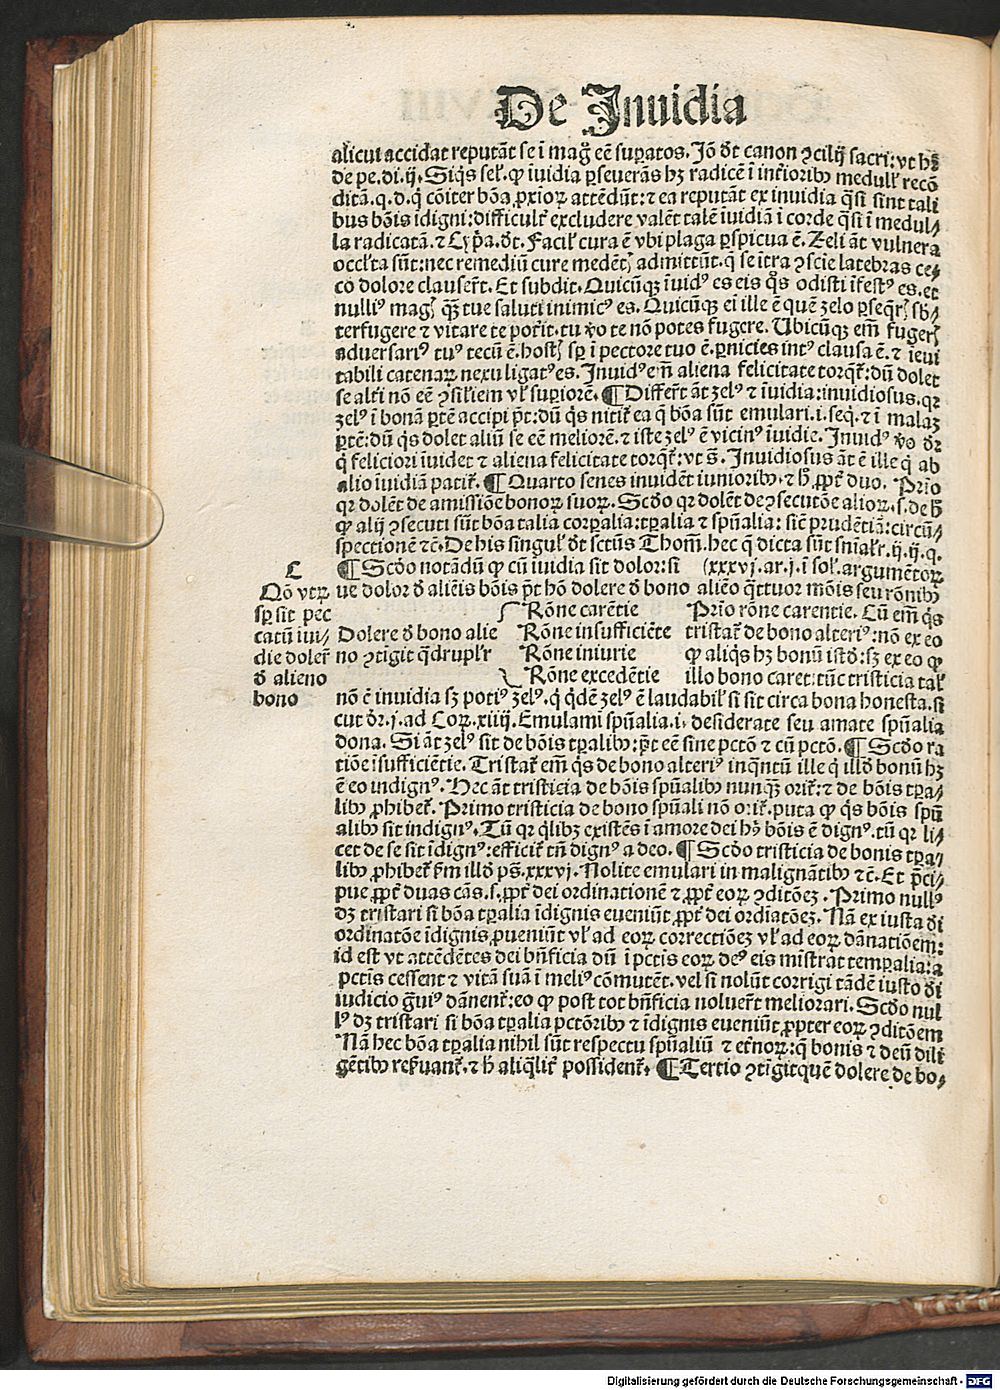 De Inuidia
alicui accidat reputāt se ī mag̃ eē suꝑatos. Iō d̄t canon ↄcilij sacri: vt hr̄
de pe. di. ij. Siq̄s sel̕. ꝙ īuidia ꝑseuerās hꝫ radicē ī inferiorib⁹ medull̕ recō
ditā. q. d. q̄ cōiter bōa ꝓxioꝝ attēdūt: ⁊ ea reputāt ex inuidia q̄si sint tali
bus bōis īdigni: difficult̄ excludere valēt talē īuidiā ī corde q̄si ī medul⸗
la radicatā. ⁊ Cypͥa. d̄t. Facil̕ cura ē vbi plaga ꝑspicua ē. Zeli āt vulnera
occl̕ta sūt: nec remediū cure medēt̕ admittūt. q̄ se ītra ↄscie latebras ce⸗
co dolore clauser̄t. Et subdit. Quicūqꝫ īuid⁹ es eis q̄s odisti īfest⁹ es. et
nulli⁹ mag̕ qꝫ tue saluti inimic⁹ es. Quicūqꝫ ei ille ē quē zelo ꝑseq̄r̕ sb̄⸗
terfugere ⁊ vitare te poter̄it. tu v̄o te nō potes fugere. Ubicūqꝫ em̄ fuger̕
aduersari⁹ tu⁹ tecū ē. host̕ sꝑ ī pectore tuo ē. ꝑnicies int⁹ clausa ē. ⁊ īeui
tabili catenaꝝ nexu ligat⁹ es. Inuid⁹ em̄ aliena felicitate torqt̄: dū dolet
se alt̄i nō eē ↄsil̕em vl̕ suꝑiorē. ¶ Differt̄ āt zel⁹ ⁊ īuidia: inuidiosus. qꝛ
zel⁹ ī bonā ꝑtē accipi pt̄: dū q̄s nitit̄ ea q̄ bōa sūt emulari. i. seq̄. ⁊ ī malaꝫ
ꝑtē: dū q̄s dolet aliū se eē meliorē. ⁊ iste zel⁹ ē vicin⁹ īuidie. Inuid⁹ v̄o d̄r
q̄ feliciori īuidet ⁊ aliena felicitate torqt̄: vt s̄. Inuidiosus āt ē ille q̄ ab
alio īuidiā patit̄. ¶ Quarto senes inuidēt iuniorib⁹. ⁊ h̄ ꝓpt̄ duo. Prīo
qꝛ dolēt de amissiōe bonoꝝ suoꝝ. Scd̄o qꝛ dolēt de ↄsecutōe alioꝝ. s. de h̄
ꝙ alij ↄsecuti sūt bōa talia corꝑalia: tꝑalia ⁊ spūalia: siē prudētiā: circū⸗
spectionē ⁊c. De his singul̕ d̄t sctūs Thom̄. hec q̄ dicta sūt snīal̕r. ij. ij. q.
¶ Scd̄o notādū ꝙ cū īuidia sit dolor: si (xxxvj. ar. j. ī sol̕. argumētoꝝ
ue dolor d̄ aliēis bōis pt̄ hō dolere d̄ bono aliēo q̄ttuor mōis seu rōnib⁹
C
Qō vtꝝ
sꝑ sit pec
catū iui⸗
die doler̄
d̄ alieno
bono
Dolere d̄ bono alie
no ↄtigit q̄drupl̕r
Rōne carētie
Rōne insufficiētie
Rōne iniurie
Rōne excedētie
Prīo rōne carentie. Cū em̄ q̄s
tristat̄ de bono alteri⁹: nō ex eo
ꝙ aliq̄s hꝫ bonū istd̄: sꝫ ex eo ꝙ
illo bono caret: tūc tristicia tal̕
nō ē inuidia sꝫ poti⁹ zel⁹. q̄ q̄dē zel⁹ ē laudabil̕ si sit circa bona honesta. si
cut d̄r. j. ad Coꝝ. xiiij. Emulamī spūalia. i. desiderate seu amate spūalia
dona. Si āt zel⁹ sit de bōis tꝑalib⁹: pt̄ eē sine pctō ⁊ cū pctō. ¶ Scd̄o ra
tiōe īsufficiētie. Tristat̄ em̄ q̄s de bono alteri⁹ in q̄ntū ille q̄ illd̄ bonū hꝫ
ē eo indign⁹. Hec āt tristicia de bōis spūalib⁹ nunqꝫ orit̄: ⁊ de bōis tꝑa⸗
lib⁹ ꝓhibet̄. Primo tristicia de bono spūali nō orit̄. puta ꝙ q̄s bōis spū
alib⁹ sit indign⁹. Tū qꝛ q̄libꝫ existēs ī amore dei hr̄ bōis ē dign⁹. tū qꝛ li⸗
cet de se sit īdign⁹: efficit̄ tn̄ dign⁹ a deo. ¶ Scd̄o tristicia de bonis tꝑa⸗
lib⁹ ꝓhibet̄ fm̄ illd̄ ps̄. xxxvj. Nolite emulari in malignātib⁹ ⁊c. Et p̄ci⸗
pue ꝓpt̄ duas cās. s. ꝓpt̄ dei ordinationē ⁊ ꝓpt̄ eoꝝ ↄditōeꝫ. Primo null⁹
dꝫ tristari si bōa tꝑalia īdignis eueniūt ꝓpt̄ dei ordiatōeꝫ. Nā ex iusta d̄i
ordinatōe īdignis ꝓueniūt vl̕ ad eoꝝ correctiōeꝫ vl̕ ad eoꝝ dānatiōem:
id est vt attēdētes dei bn̄ficia dū ī pctīs eoꝝ de⁹ eis mīstrat temꝑalia: a
pctīs cessent ⁊ vitā suā ī meli⁹ cōmutēt. vel si nolūt corrigi tādē iusto d̄i
iudicio g̃ui⁹ dānent̄: eo ꝙ post tot bn̄ficia noluer̄t meliorari. Scd̄o nul
l⁹ dꝫ tristari si bōa tꝑalia pctōrib⁹ ⁊ īdignis eueniūt ꝓpter eoꝝ ↄditōem
Nā hec bōa tꝑalia nihil sūt respectu spūaliū ⁊ et̄noꝝ: q̄ bonis ⁊ deū dili
gētib⁹ reẜuant̄. ⁊ h̄ aliq̄lit̄ possident̄. ¶ Tertio ↄtīgit quē dolere de bo⸗
Digitalisierung gefördert durch die Deutsche Forschungsgemeinschaft - DFG